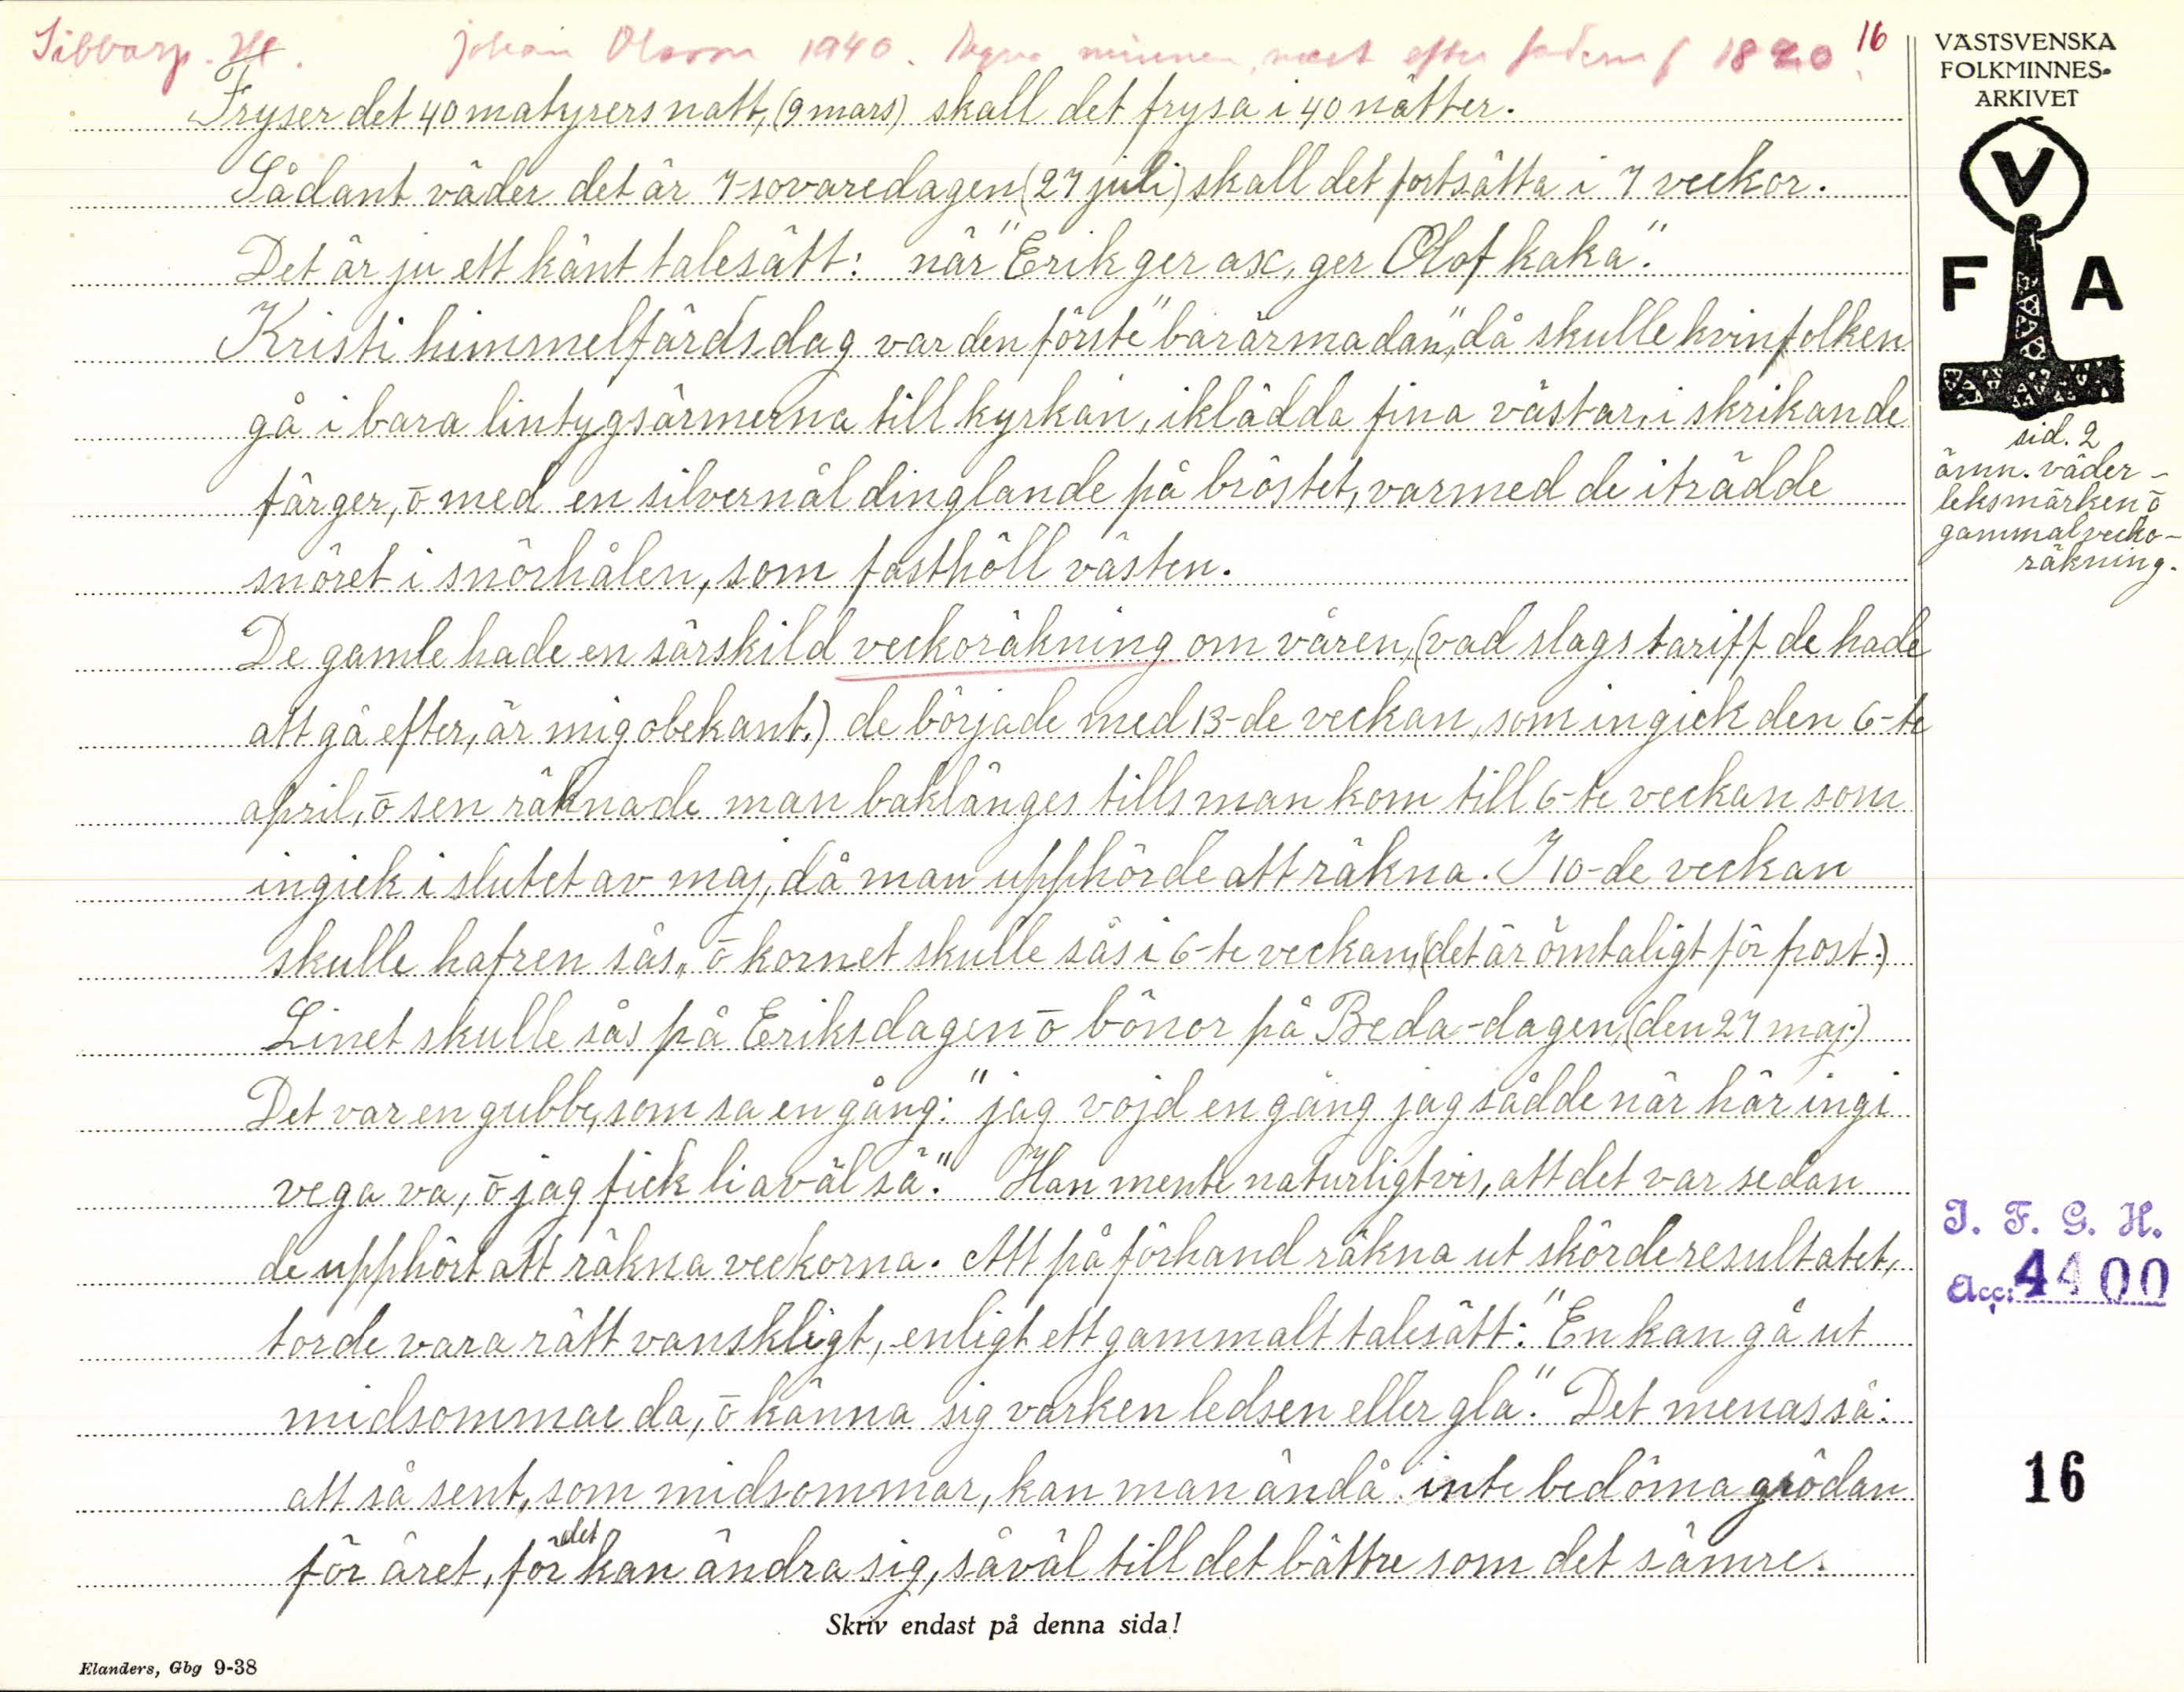 Sibbarp. Hl. Johan Olsson 1940. Egna minnen, mest efter fadern f 1820. 16
Fryser det 40 matyrers natt, (9 mars) skall det frysa i 40 nätter.
Sådant väder det är 7-sovaredagen (27 juli) skall det fortsätta i 7 veckor.
Det är ju ett känt talesätt: när "Erik ger ax, ger Olof kaka".
Kristi himmelfärdsdag var den förste "barärmadan", då skulle kvinfolken
gå i bara lintygsärmerna till kyrkan, iklädda fina västar, i skrikande
färger, ō med en silvernål dinglande på bröstet, varmed de iträdde
snöret i snörhålen, som fasthöll västen.
De gamle hade en särskild veckoräkning om våren, (vad slags tariff de hade
att gå efter, är mig obekant.) de började med 13-de veckan, som ingick den 6-te
april, ō sen räknade man baklänges tills man kom till 6-te veckan som
ingick i slutet av maj, då man upphörde att räkna. I 10-de veckan
skulle hafren sås, ō kornet skulle sås i 6-te veckan, (det är ömtaligt för frost.)
Linet skulle sås på Eriksdagen ō bönor på Beda-dagen, (den 27 maj.)
Det var en gubbe, som sa en gång: "jag vojd en gång jag sådde när här ingi
vega va, ō jag fick liaväl sä". Han mente naturligtvis, att det var sedan
de upphört att räkna veckorna. Att på förhand räkna ut skörderesultatet,
torde vara rätt vanskligt, enligt ett gammalt talesätt: "En kan gå ut
midsommae da, ō känna sig varken ledsen eller gla". Det menas så:
att så sent, som midsommar, kan man ändå inte bedöma grödan
för året, för det kan ändra sig, såväl till det bättre som det sämre.
Skriv endast på denna sida!
Elanders, Gbg 9-38
VÄSTSVENSKA
FOLKMINNES-
ARKIVET
V
F A
sid. 2
ämn. väder-
leksmärken ō
gammal vecko-
räkning.
I. F. G. H.
Acc: 4400
16